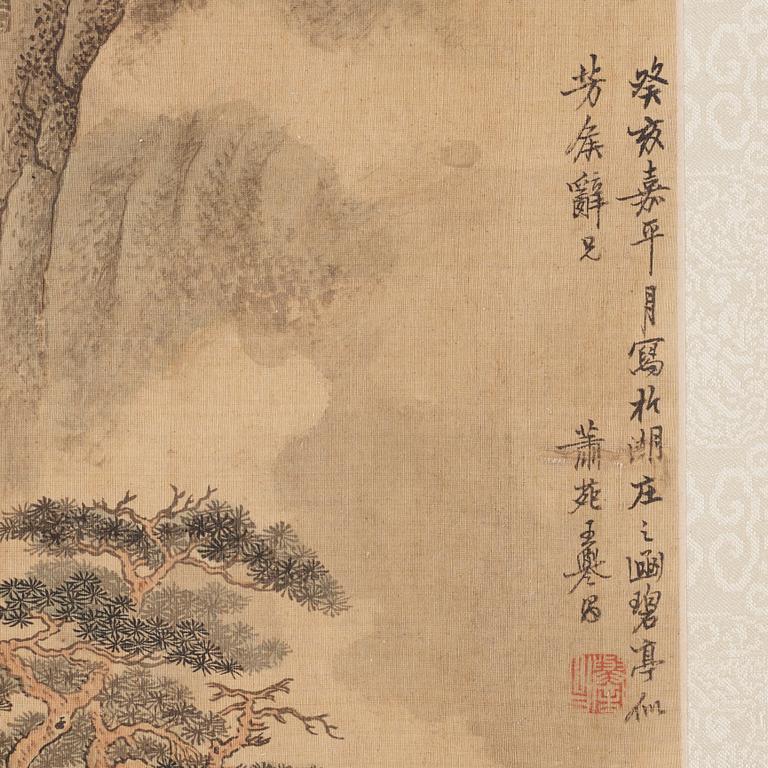 癸亥嘉平月寫於湖庄之涵碧亭似
芳侯辭兄
蕭苑王